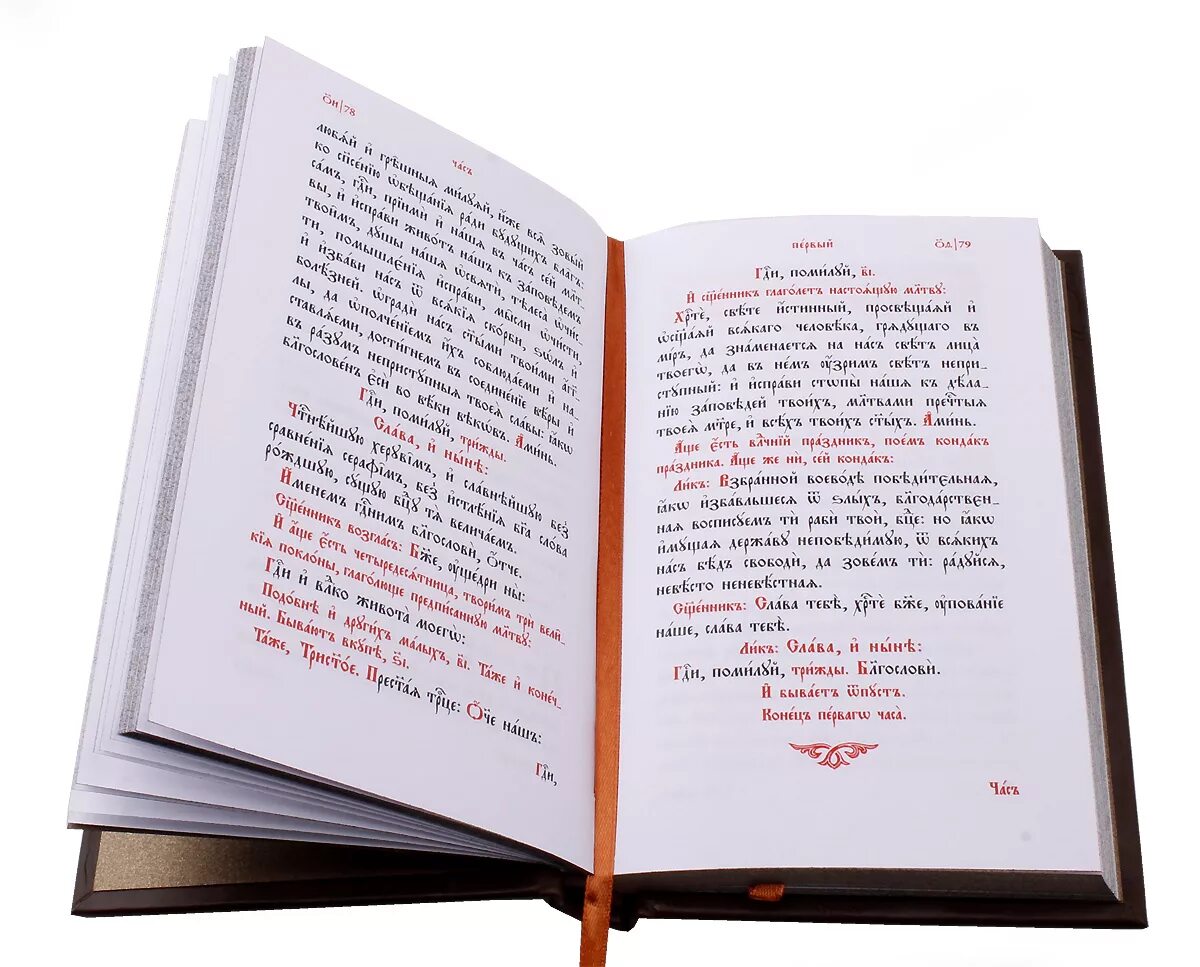 ѻ҃и|78
часъ
любѧ́й и҆ грѣ́шныѧ ми́лꙋѧй, и҆́же всѧ̑ зовы́й
ко сп҃се́нїю ѡ҆бѣща́нїѧ ра́ди бꙋ́дꙋщихъ бла̑гъ:
са́мъ, гдⷭ҇и, прїимѝ и҆ на́шѧ въ ча́съ се́й мл҃т_
вы, и҆ и҆спра́ви живо́тъ на́шъ къ за́повѣдемъ
твои̑мъ, дꙋ́шы на́шѧ ѡ҆свѧтѝ, тѣлеса̀ ѡ҆чи́с_
ти, помышлє́нїѧ и҆спра́ви, мы̑сли ѡ҆чи́сти,
и҆ и҆зба́ви на́съ ѿ всѧ́кїѧ ско́рби, ѕѡ́лъ и҆
болѣ́зней. ѡ҆градѝ на́съ ст҃ы́ми твои́ми а҆́гг҃_
лы, да ѡ҆полче́нїемъ и҆́хъ соблюда́еми и҆ на_
ставлѧ́еми, дости́гнемъ въ соедине́нїе вѣ́ры и҆
въ ра́зꙋмъ непристꙋ́пныѧ твоеѧ̀ сла́вы: ꙗ҆́кѡ
бл҃гослове́нъ є҆сѝ во вѣ́ки вѣкѡ́въ. А҆ми́нь.
Гдⷭ҇и, поми́лꙋй, три́жды.
Сла́ва, и҆ ны́нѣ:
Чⷭ҇тнѣ́йшꙋю херꙋві̑мъ, и҆ сла́внѣйшꙋю без̾
сравне́нїѧ серафі̑мъ, без̾ и҆стлѣ́нїѧ бг҃а сло́ва
ро́ждшꙋю, сꙋ́щꙋю бцⷣꙋ тѧ̀ велича́емъ.
И҆́менемъ гдⷭ҇нимъ бл҃гословѝ, ѻ҆́тче.
Сщ҃е́нникъ возгла́съ: Бж҃е, оу҆ще́дри ны̀:
И҆ а҆́ще є҆́сть четыредесѧ́тница, твори́мъ трѝ вели̑_
кїѧ покло́ны, глаго́люще предпи́саннꙋю мл҃твꙋ:
Гдⷭ҇и и҆ влⷣко живота̀ моегѡ̀:
Подо́бнѣ и҆ дрꙋги́хъ ма́лыхъ, в҃і. Та́же и҆ коне́ч_
ный. Быва́ютъ вкꙋ́пѣ, ѕ҃і.
Та́же, Трист҃о́е. Прест҃а́ѧ трⷪ҇це: Ѻ҆́ч҃е на́шъ:
Гдⷭ҇и,
пе́рвый
ѻ҃ѳ|79
Гдⷭ҇и, поми́лꙋй, в҃і.
И҆ сщ҃е́нникъ глаго́летъ настоѧ́щꙋю мл҃твꙋ:
Хрⷭ҇тѐ, свѣ́те и҆́стинный, просвѣща́ѧй и҆
ѡ҆сщ҃а́ѧй всѧ́каго человѣ́ка, грѧдꙋ́щаго въ
мі́ръ, да зна́менаетсѧ на на́съ свѣ́тъ лица̀
твоегѡ̀, да въ не́мъ оу҆́зримъ свѣ́тъ непри_
стꙋ́пный: и҆ и҆спра́ви стѡпы̀ на́шѧ къ дѣ́ла_
нїю за́повѣдей твои́хъ, мл҃твами пречⷭ҇тыѧ
твоеѧ̀ мт҃ре, и҆ всѣ́хъ твои́хъ ст҃ы́хъ. А҆ми́нь.
А҆́ще є҆́сть влⷣчнїй пра́здникъ, пое́мъ конда́къ
пра́здника. А҆́ще же нѝ, се́й конда́къ:
Ли́къ: Взбра́нной воево́дѣ побѣди́тельнаѧ,
ꙗ҆́кѡ и҆зба́вльшесѧ ѿ ѕлы́хъ, бл҃года́рствен_
наѧ воспи́сꙋемъ тѝ рабѝ твоѝ, бцⷣе: но ꙗ҆́кѡ
и҆мꙋ́щаѧ держа́вꙋ непобѣди́мꙋю, ѿ всѧ́кихъ
на́съ бѣ́дъ свободѝ, да зове́мъ тѝ: ра́дꙋйсѧ,
невѣ́сто неневѣ́стнаѧ.
Сщ҃е́нникъ: Сла́ва тебѣ̀, хрⷭ҇тѐ бж҃е, оу҆пова́нїе
на́ше, сла́ва тебѣ̀.
Ли́къ: Сла́ва, и҆ ны́нѣ:
Гдⷭ҇и, поми́лꙋй, три́жды. Бл҃гословѝ.
И҆ быва́етъ ѿпꙋ́стъ.
Коне́цъ пе́рвагѡ часа̀.
Ча́съ